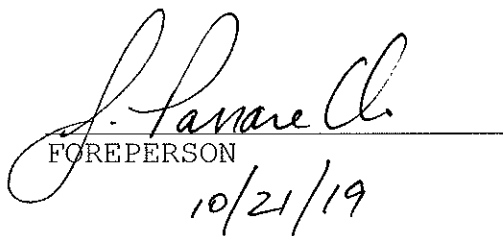 J.
FOREPERSON
10/21/19